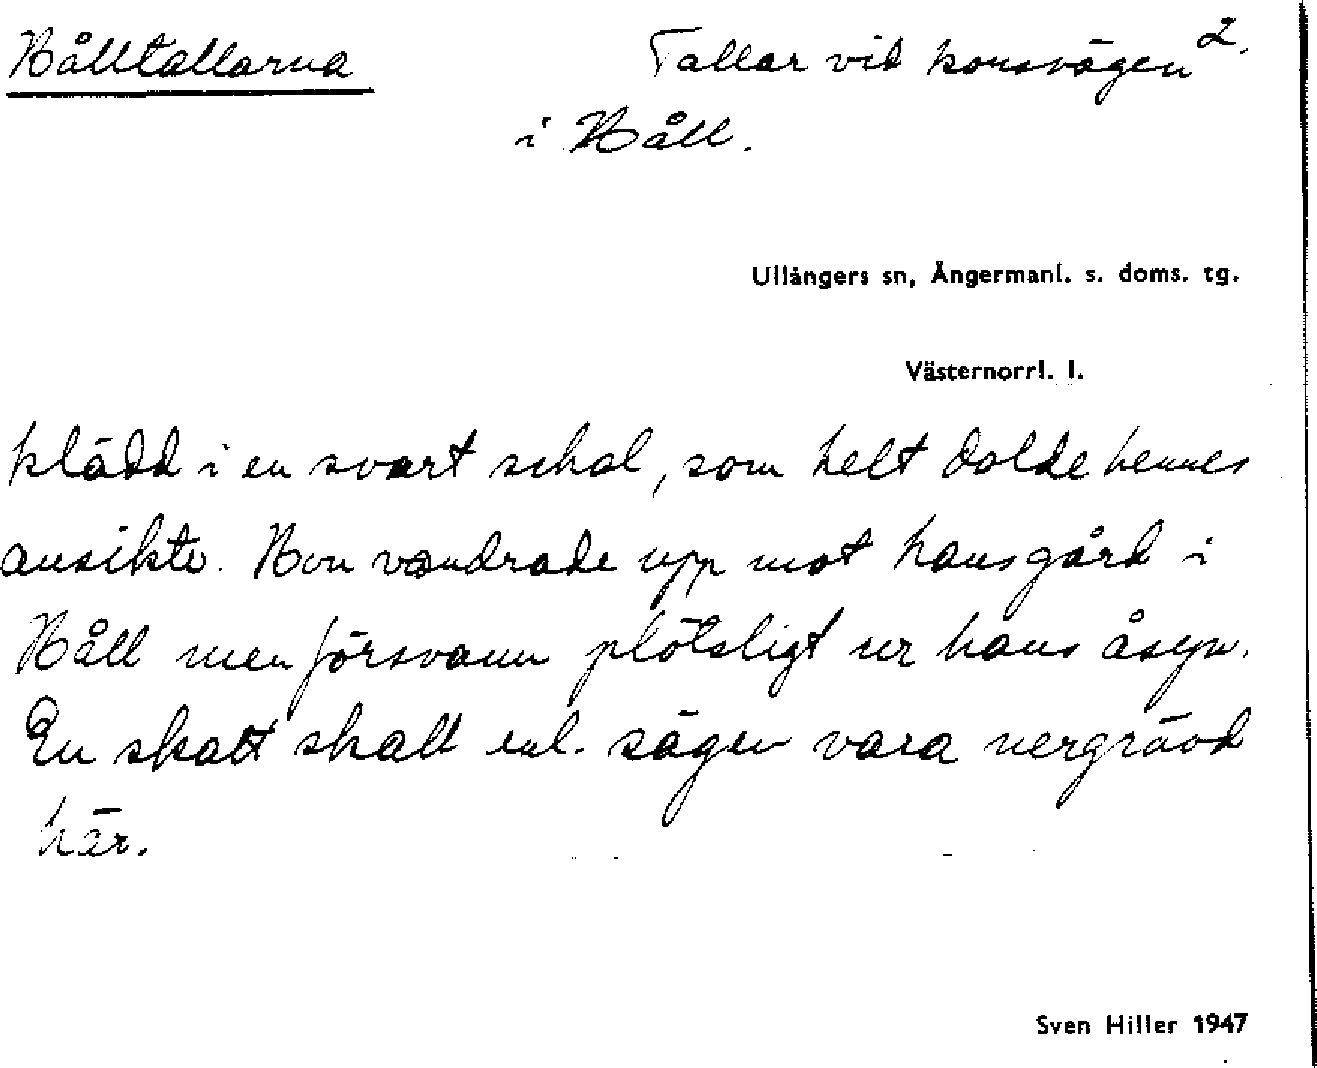 Hålltallarna Tallar vid korsvägen 2.
i Håll.
Ullångers sn, Ångermanl. s. doms. tg.
Västernorrl. l.
klädd i en svart schal, som helt dolde hennes
ansikte. Hon vandrade upp mot hans gård i
Håll men försvann plötsligt ur hans åsyn.
En skatt skall enl. sägen vara nergrävd
här.
Sven Hiller 1947